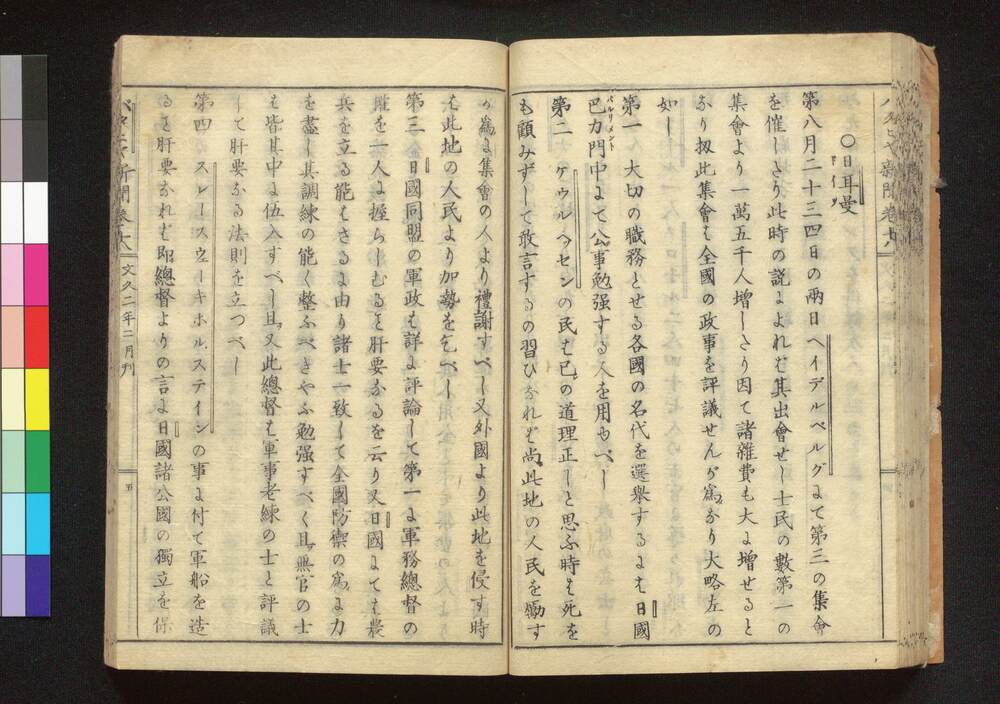 〇日耳曼
第八月二十三四日の兩日ヘイデルベルグにて第三の集會
を催したり此時の説によれば其出會せし士民の數第一の
集會より一萬五千人增したり因て諸雜費も大に增せると
なり扨此集會は全國の政事を評議せんが爲なり大略左の
如し
第一 大切の職務とせる各國の名代を選擧するには日國
巴力門中にて公事勉强する人を用ゆべし
パルリメント
第二 ケウルヘッセンの民は己の道理正しと思ふ時は死を
も顧みずして敢言するの習ひなれば尚此地の人民を勵す
が爲に集會の人より禮謝すべし又外國より此地を侵す時
は此地の人民より加勢を乞べし
第三 日國同盟の軍政は詳に評論して第一に軍務總督の
權を一人に握らしむると肝要なるを云り又日國にては農
兵を立る能はざるに由り諸士一致して全國防禦の爲に力
を盡し其調練の能く整ふべきやふ勉强すべく且無官の士
も皆其中に伍入すべし且又此總督は軍事老練の士と評議
して肝要なる法則を立つべし
第四 スレースウヰーキホルステインの事に付て軍船を造
ると肝要なれば即總督よりの言に日國諸公國の獨立を保
バタビヤ新聞卷十八 文久二年二月刊
五